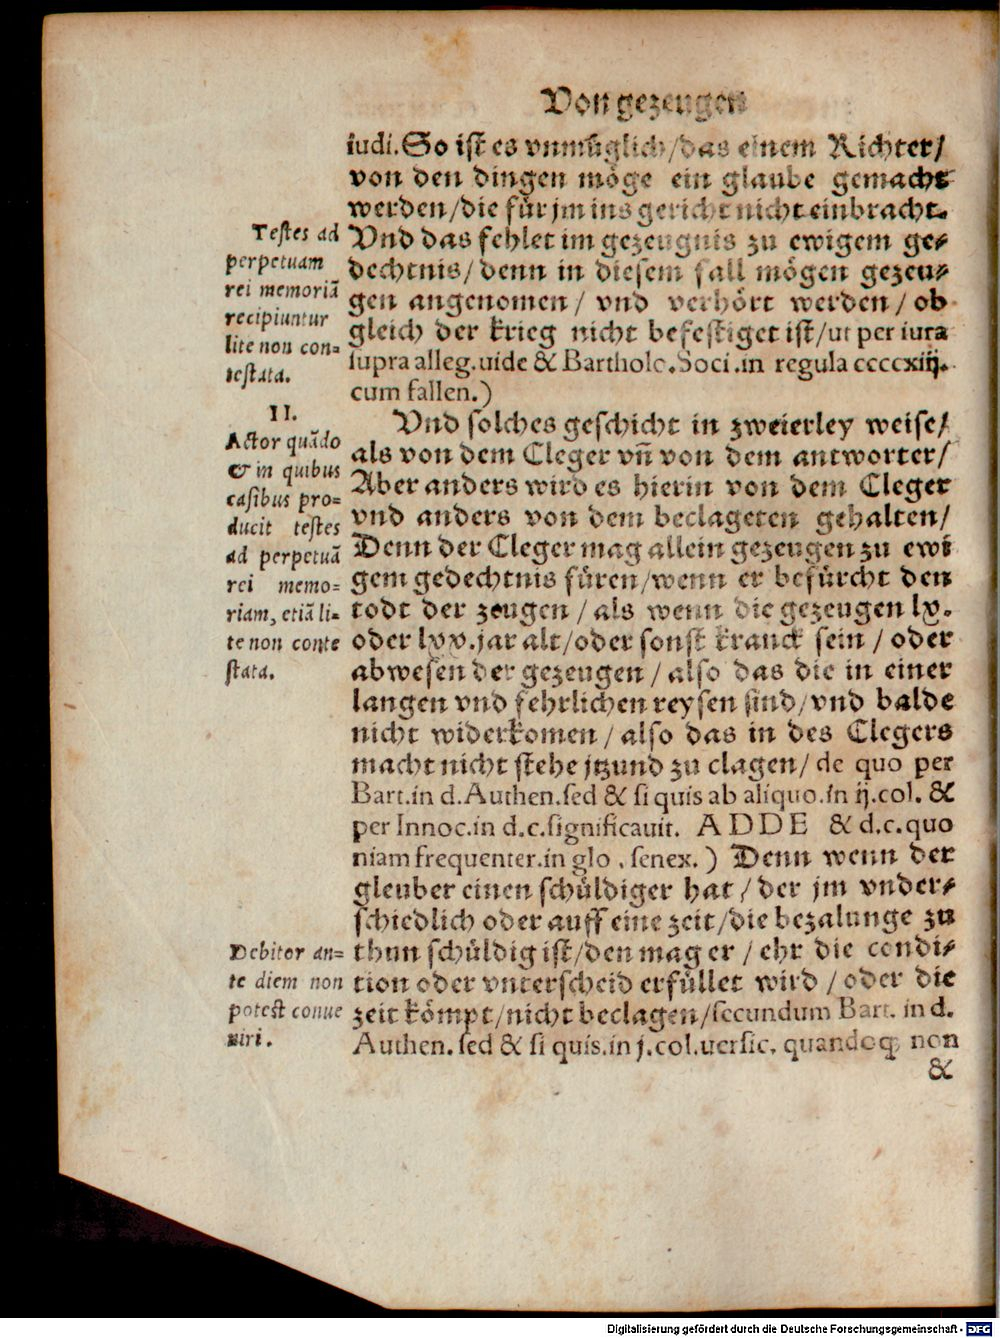 Von gezeugen
iudi. So ist es vnmüglich/das einem Richter/
von den dingen möge ein glaube gemacht
werden/die für jm ins gericht nicht einbracht.
Vnd das fehlet im gezeugnis zu ewigem ge⸗
dechtnis/denn in diesem fall mögen gezeu⸗
gen angenomen/ vnd verhört werden/ob
gleich der krieg nicht befestiget ist/ut per iura
supra alleg. uide & Bartholo. Soci. in regula ccccxiij.
cum fallen.)
Vnd solches geschicht in zweierley weise/
als von dem Cleger vñ von dem antworter/
Aber anders wird es hierin von dem Cleger
vnd anders von dem beclageten gehalten/
Denn der Cleger mag allein gezeugen zu ewi
gem gedechtnis füren/wenn er befürcht den
todt der zeugen/als wenn die gezeugen lx.
oder lxx. jar alt/oder sonst kranck sein/oder
abwesen der gezeugen/also das die in einer
langen vnd fehrlichen reysen sind/vnd balde
nicht widerkomen/also das in des Clegers
macht nicht stehe jtzund zu clagen/de quo per
Bart. in d. Authen. sed & si quis ab aliquo. in ij. col. &
per Innoc. in d. c. significauit. ADDE & d. c. quo
niam frequenter. in glo. senex.) Denn wenn der
gleuber einen schüldiger hat/der jm vnder⸗
schiedlich oder auff eine zeit/die bezalunge zu
thun schüldig ist/den mag er/ehr die condi⸗
tion oder vnterscheid erfüllet wird/oder die
zeit kömpt/nicht beclagen/secundum Bart. in d.
Authen. sed & si quis. in j. col. uersic. quandoq; non
&
Testes ad
perpetuam
rei memoriã
recipiuntur
lite non con=
testata.
II.
Actor quãdo
& in quibus
casibus pro=
ducit testes
ad perpetuã
rei memo=
riam, etiã li=
te non conte
stata.
Debitor an=
te diem non
potest conue
niri.
Digitalisierung gefördert durch die Deutsche Forschungsgemeinschaft - DFG